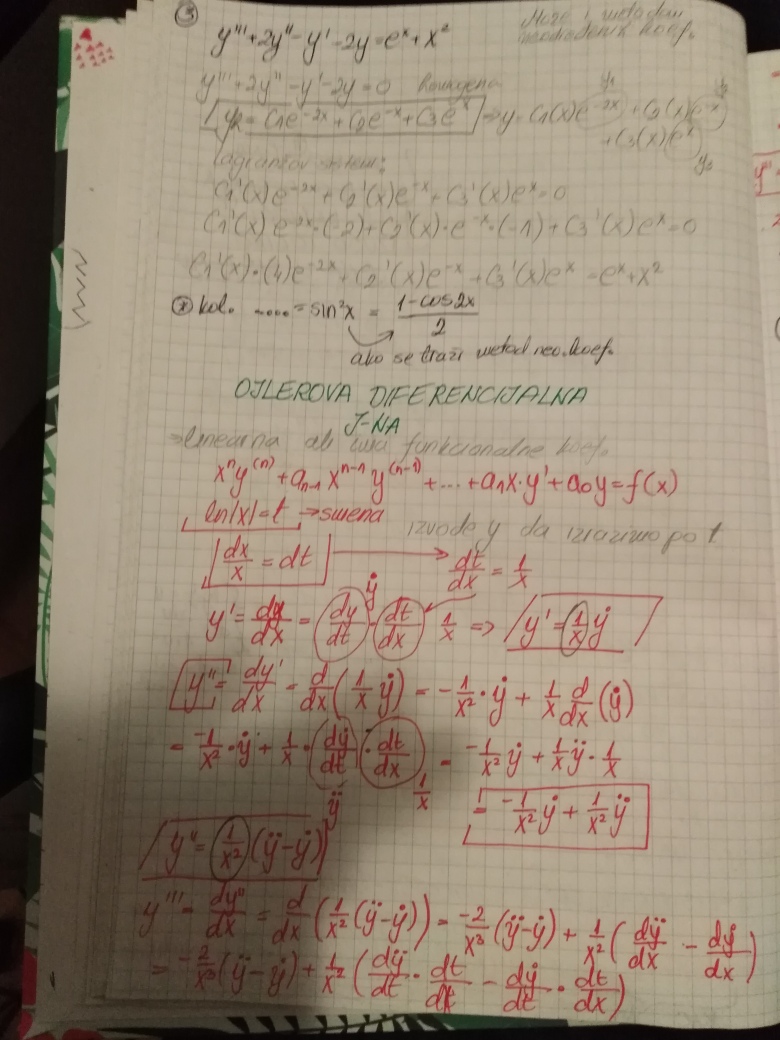 ③ y''' + 2y'' - y' - 2y = e^x + x^2
Može i metodom neodređenih koef.
y''' + 2y'' - y' - 2y = 0 homogena
y_h = C1e^{-2x} + C2e^{-x} + C3e^x => y = C1(x)e^{-2x} + C2(x)e^{-x}
+ C3(x)e^x
y1 y2 y3
Lagranžov sistem:
C1'(x)e^{-2x} + C2'(x)e^{-x} + C3'(x)e^x = 0
C1'(x)e^{-2x}·(-2) + C2'(x)·e^{-x}·(-1) + C3'(x)e^x = 0
C1'(x)·(4)e^{-2x} + C2'(x)e^{-x} + C3'(x)e^x = e^x + x^2
kol. ..... = sin^2x = \frac{1-cos2x}{2}
ako se traži metod neo. koef.
OJLEROVA DIFERENCIJALNA
J-NA
→ linearna ali ima funkcionalne koef.
x^n y^{(n)} + a_{n-1} x^{n-1} y^{(n-1)} + ... + a_1 x·y' + a_0 y = f(x)
ln|x| = t → smena
izvode y da izrazimo po t
\frac{dx}{x} = dt → \frac{dt}{dx} = \frac{1}{x}
y' = \frac{dy}{dx} = \frac{dy}{dt} · \frac{dt}{dx} ẏ \frac{1}{x} => y' = \frac{1}{x} ẏ
y'' = \frac{dy'}{dx} = \frac{d}{dx}(\frac{1}{x} ẏ) = -\frac{1}{x^2} · ẏ + \frac{1}{x} \frac{d}{dx}(ẏ)
= \frac{-1}{x^2} · ẏ + \frac{1}{x} · \frac{dẏ}{dt} · \frac{dt}{dx} = \frac{-1}{x^2} ẏ + \frac{1}{x} ÿ · \frac{1}{x}
ÿ \frac{1}{x} = \frac{-1}{x^2} ẏ + \frac{1}{x^2} ÿ
y'' = \frac{1}{x^2}(ÿ - ẏ)
y''' = \frac{dy''}{dx} = \frac{d}{dx}(\frac{1}{x^2}(ÿ - ẏ)) = \frac{-2}{x^3}(ÿ - ẏ) + \frac{1}{x^2}(\frac{dÿ}{dx} - \frac{dẏ}{dx})
= \frac{-2}{x^3}(ÿ - ẏ) + \frac{1}{x^2}(\frac{dÿ}{dt} · \frac{dt}{dx} - \frac{dẏ}{dt} · \frac{dt}{dx})